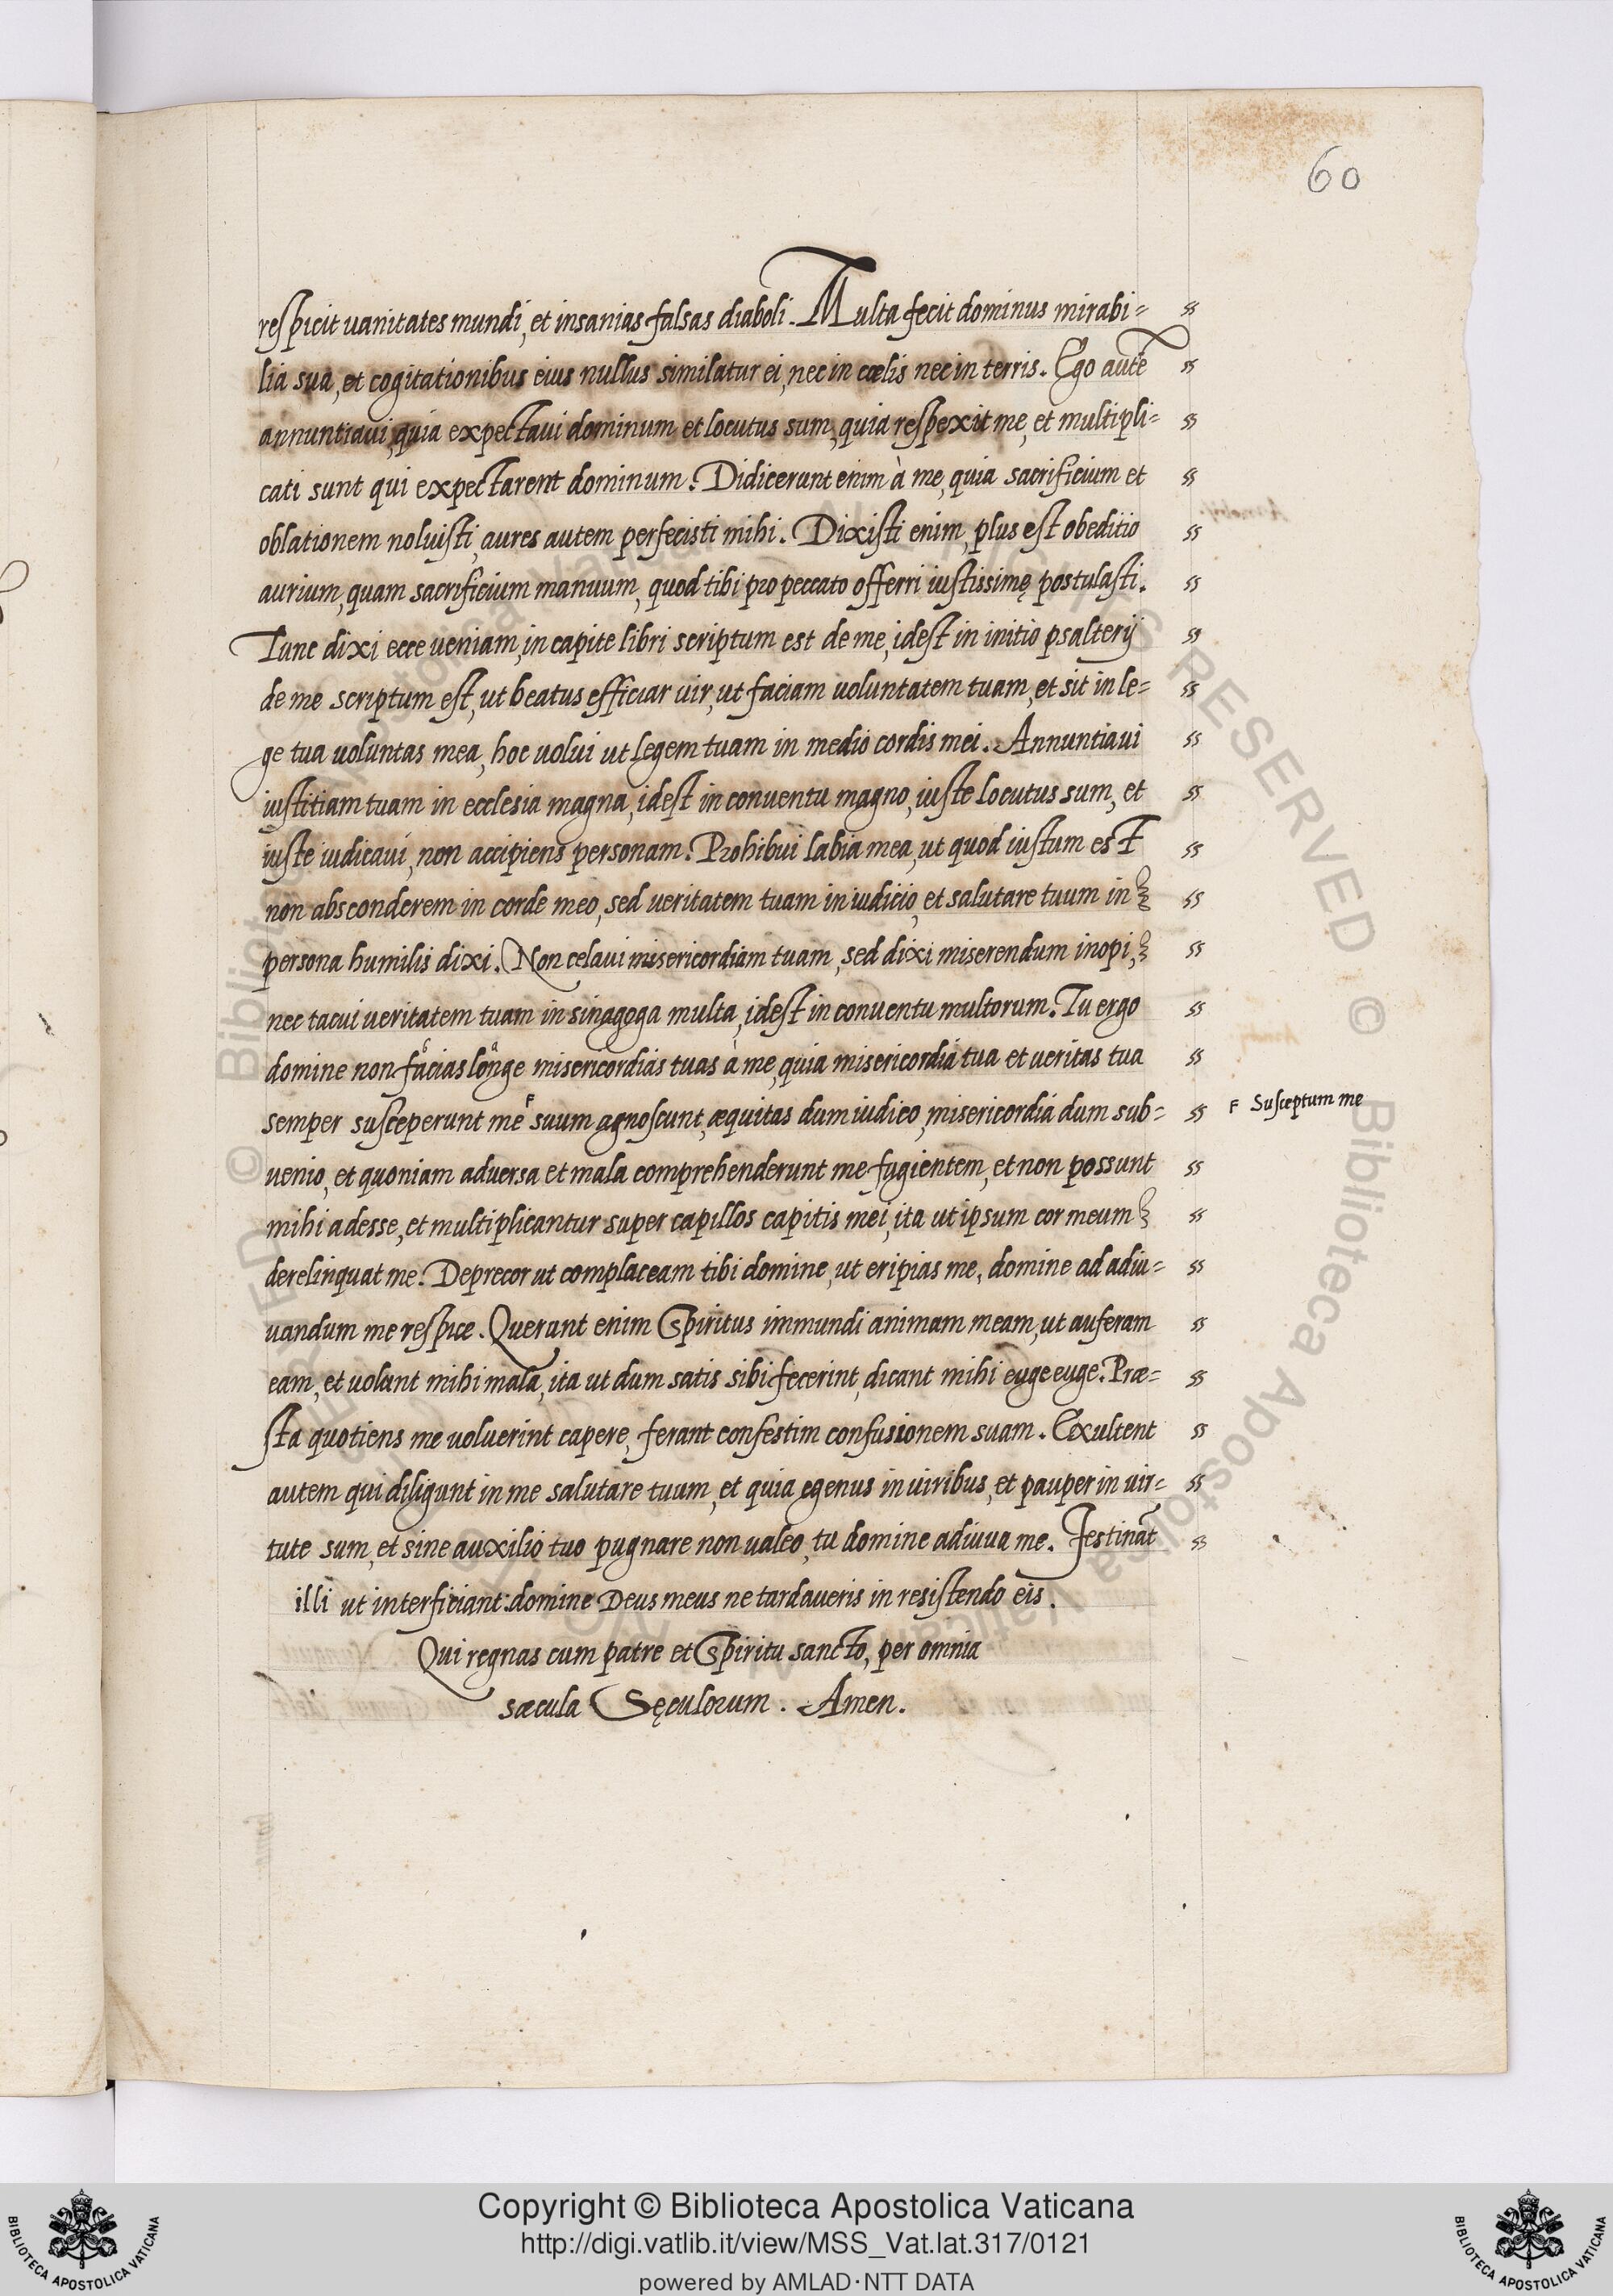 60
respicit uanitates mundi, et insanias falsas diaboli. Multa fecit dominus mirabi=
lia sua, et cogitationibus eius nullus similatur ei, nec in cœlis nec in terris. Ego autẽ
annuntiaui, quia expectaui dominum et locutus sum, quia respexit me, et multipli=
cati sunt qui expectarent dominum. Didicerunt enim à me, quia sacrificium et
oblationem noluisti, aures autem perfecisti mihi. Dixisti enim, plus est obeditio
aurium, quam sacrificium manuum, quod tibi pro peccato offerri iustissimę postulasti.
Tunc dixi ecce ueniam, in capite libri scriptum est de me, idest in initio psalterij
de me scriptum est, ut beatus efficiar uir, ut faciam uoluntatem tuam, et sit in le=
ge tua uoluntas mea, hoc uolui ut legem tuam in medio cordis mei. Annuntiaui
iustitiam tuam in ecclesia magna, idest in conuentu magno, iuste locutus sum, et
iuste iudicaui, non accipiens personam. Prohibui labia mea, ut quod iustum est
non absconderem in corde meo, sed ueritatem tuam in iudicio, et salutare tuum in
persona humilis dixi. Non celaui misericordiam tuam, sed dixi miserendum inopi,
nec tacui ueritatem tuam in sinagoga multa, idest in conuentu multorum. Tu ergo
domine non facias longe misericordias tuas à me, quia misericordia tua et ueritas tua
semper susceperunt me suum agnoscunt, æquitas dum iudico, misericordia dum sub=
Susceptum me
uenio, et quoniam aduersa et mala comprehenderunt me fugientem, et non possunt
mihi adesse, et multiplicantur super capillos capitis mei, ita ut ipsum cor meum
derelinquat me. Deprecor ut complaceam tibi domine, ut eripias me, domine ad adiu=
uandum me respice. Querunt enim Spiritus immundi animam meam, ut auferam
eam, et uolunt mihi mala, ita ut dum satis sibi fecerint, dicant mihi euge euge. Præ=
sta quotiens me uoluerint capere, ferant confestim confusionem suam. Exultent
autem qui diligunt in me salutare tuum, et quia egenus in uiribus, et pauper in uir=
tute sum, et sine auxilio tuo pugnare non ualeo, tu domine adiuua me. Festinãt
illi ut interficiant: domine Deus meus ne tardaueris in resistendo eis.
Qui regnas cum patre et Spiritu sancto, per omnia
sæcula Sęculorum. Amen.
Copyright © Biblioteca Apostolica Vaticana
http://digi.vatlib.it/view/MSS_Vat.lat.317/0121
powered by AMLAD·NTT DATA
BIBLIOTECA APOSTOLICA VATICANA
BIBLIOTECA APOSTOLICA VATICANA